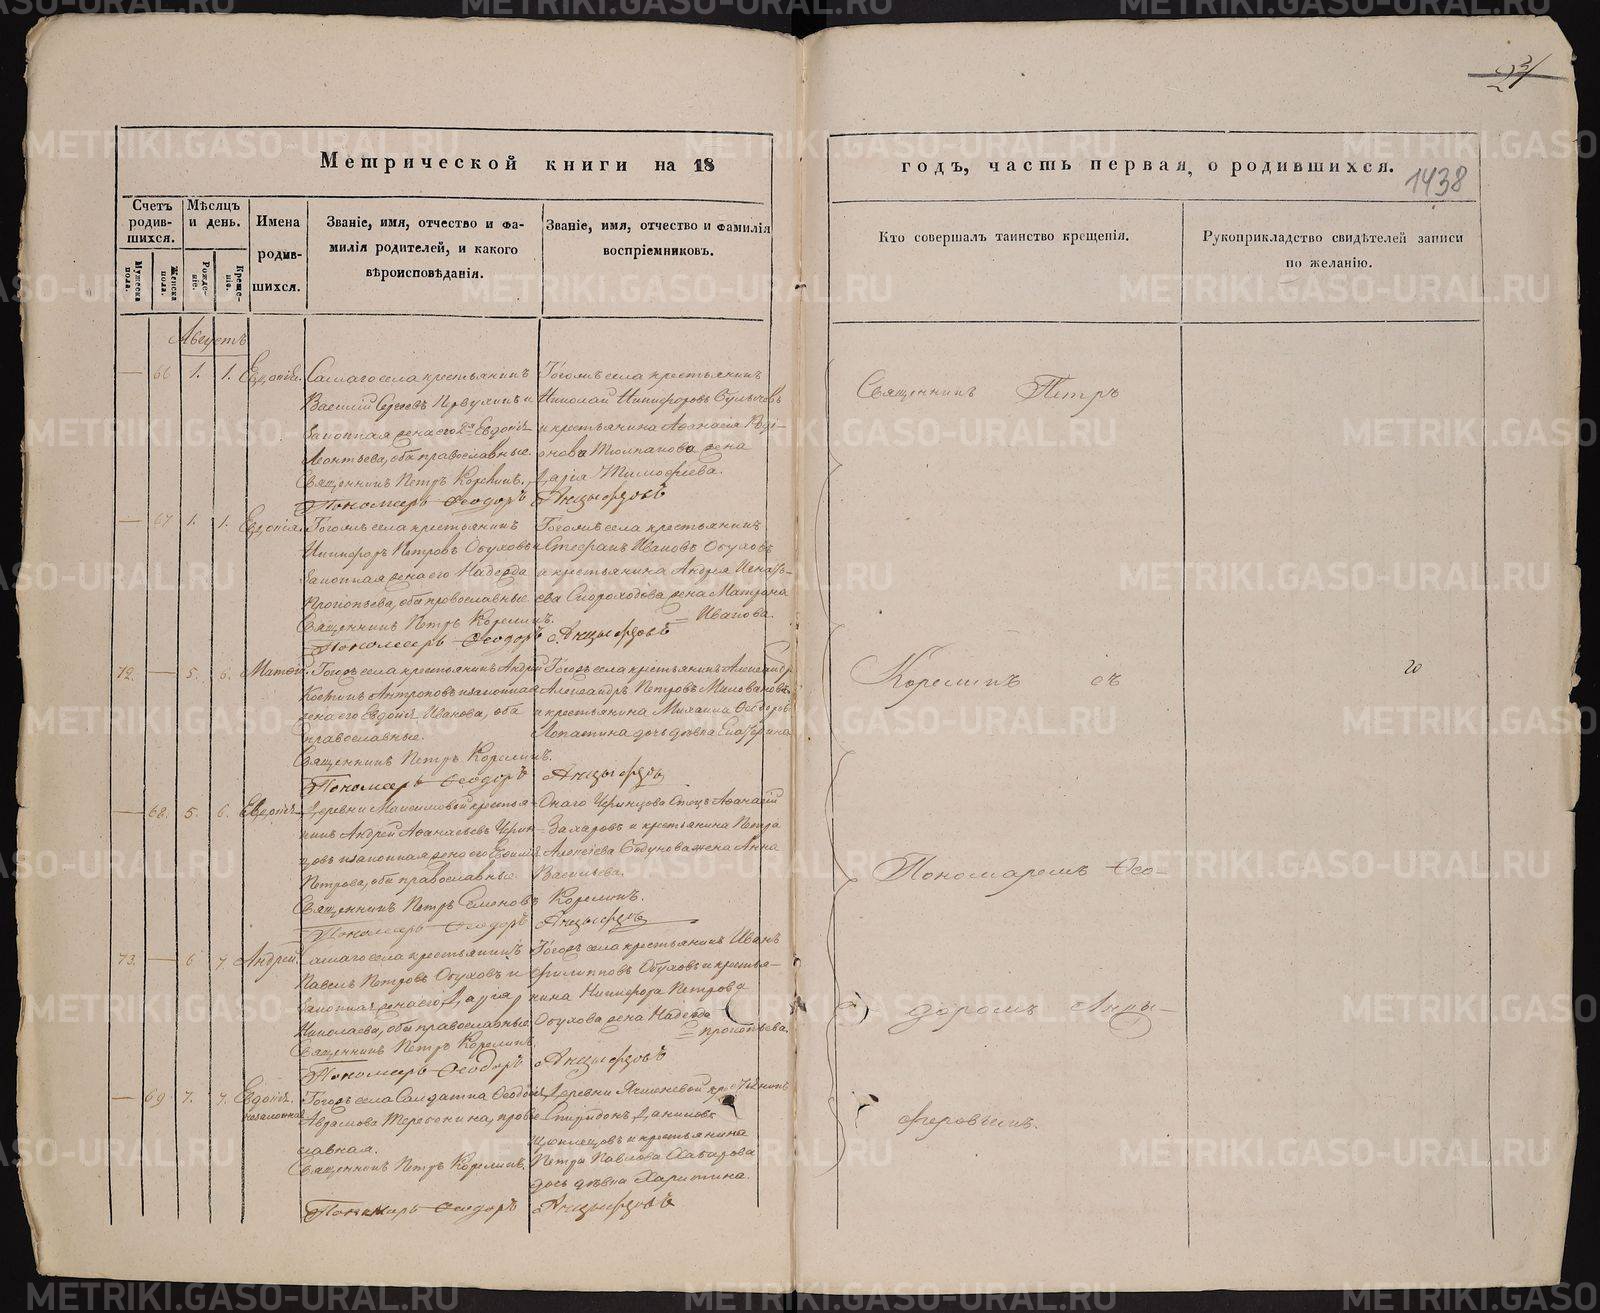 METRIKI.GASO-URAL.RU
Метрической книги на 18
годъ, часть первая, о родившихся.
1438
Счетъ родив-шихся.
Мѣсяцъ и день.
Имена родив-шихся.
Званіе, имя, отчество и фа-
милія родителей, и какого
вѣроисповѣданія.
Званіе, имя, отчество и фамилія
воспріемниковъ.
Кто совершалъ таинство крещенія.
Рукоприкладство свидѣтелей записи
по желанію.
Мужеска пола.
Женска пола.
Рожде-ніе.
Креще-ніе.
Августъ
— 66 1. 1. Евдокія.
Самаго села крестьянинъ
Василій Сергеевъ Первухинъ и
законная жена его 2я Евдокія
Леонтьева, оба православные.
Священникъ Петръ Корелинъ.
Пономарь Ѳеодоръ Анцыферовъ
Тогожъ села крестьянинъ
Николай Никифоровъ
и крестьянина Аѳанасія Роді-
онова Толмачова жена
Дарія Тимофеева.
— 67 1. 1. Евдокія.
Тогожъ села крестьянинъ
Никифоръ Петровъ Обуховъ и
законная жена его Надежда
Прокопьева, оба православные.
Священникъ Петръ Корелинъ.
Пономарь Ѳеодоръ Анцыферовъ
Тогожъ села крестьянинъ
Стефанъ Ивановъ Обуховъ
и крестьянина Андрея Игнать-
ева Скороходова жена Матрона
Иванова.
72. — 5. 6. Матѳій.
Тогожъ села крестьянинъ Андрей
Антроповъ и законная
жена его Евдокія Иванова, оба
православные.
Священникъ Петръ Корелинъ.
Пономарь Ѳеодоръ Анцыферовъ
Тогожъ села крестьянинъ Александръ
Александръ Петровъ Миловановъ
и крестьянина Михаила Ѳеодоров.
Лопатина дочь дѣвка Екатерина
— 68. 5. 6. Евдокія.
Деревни Максимовой крестья-
нинъ Андрей Аѳанасьевъ Черин-
цовъ и законная жена его
Петрова, оба православные.
Священникъ Петръ Семеновъ Корелинъ.
Пономарь Ѳеодоръ Анцыферовъ
Онаго Черинцова Отецъ Аѳанасій
Захаровъ и крестьянина Петра
Алексеева жена Анна
Васильева.
73. — 6 7. Андрей.
Самаго села крестьянинъ
Павелъ Петровъ Обуховъ и
законная жена его Дарья
Николаева, оба православные
Священникъ Петръ Корелинъ.
Пономарь Ѳеодоръ Анцыферовъ
Тогожъ села крестьянинъ Иванъ
Филипповъ Обуховъ и крестья-
нина Никифора Петрова
Обухова жена Надежда
Прокопьева.
— 69 7. 7. Евдокія.
незаконная
Тогожъ села Солдатка Ѳеодосія
Аврамова Теребенина, право-
славная.
Священникъ Петръ Корелинъ.
Пономарь Ѳеодоръ Анцыферовъ
Деревни Ячменевой крестьянинъ
Спиридонъ Даниловъ
и крестьянина
Петра Павлова Хабарова
дочь дѣвка Харитина.
Священникъ Петръ
Корелинъ съ
Пономаремъ Ѳео-
доромъ Анцы-
феровымъ.